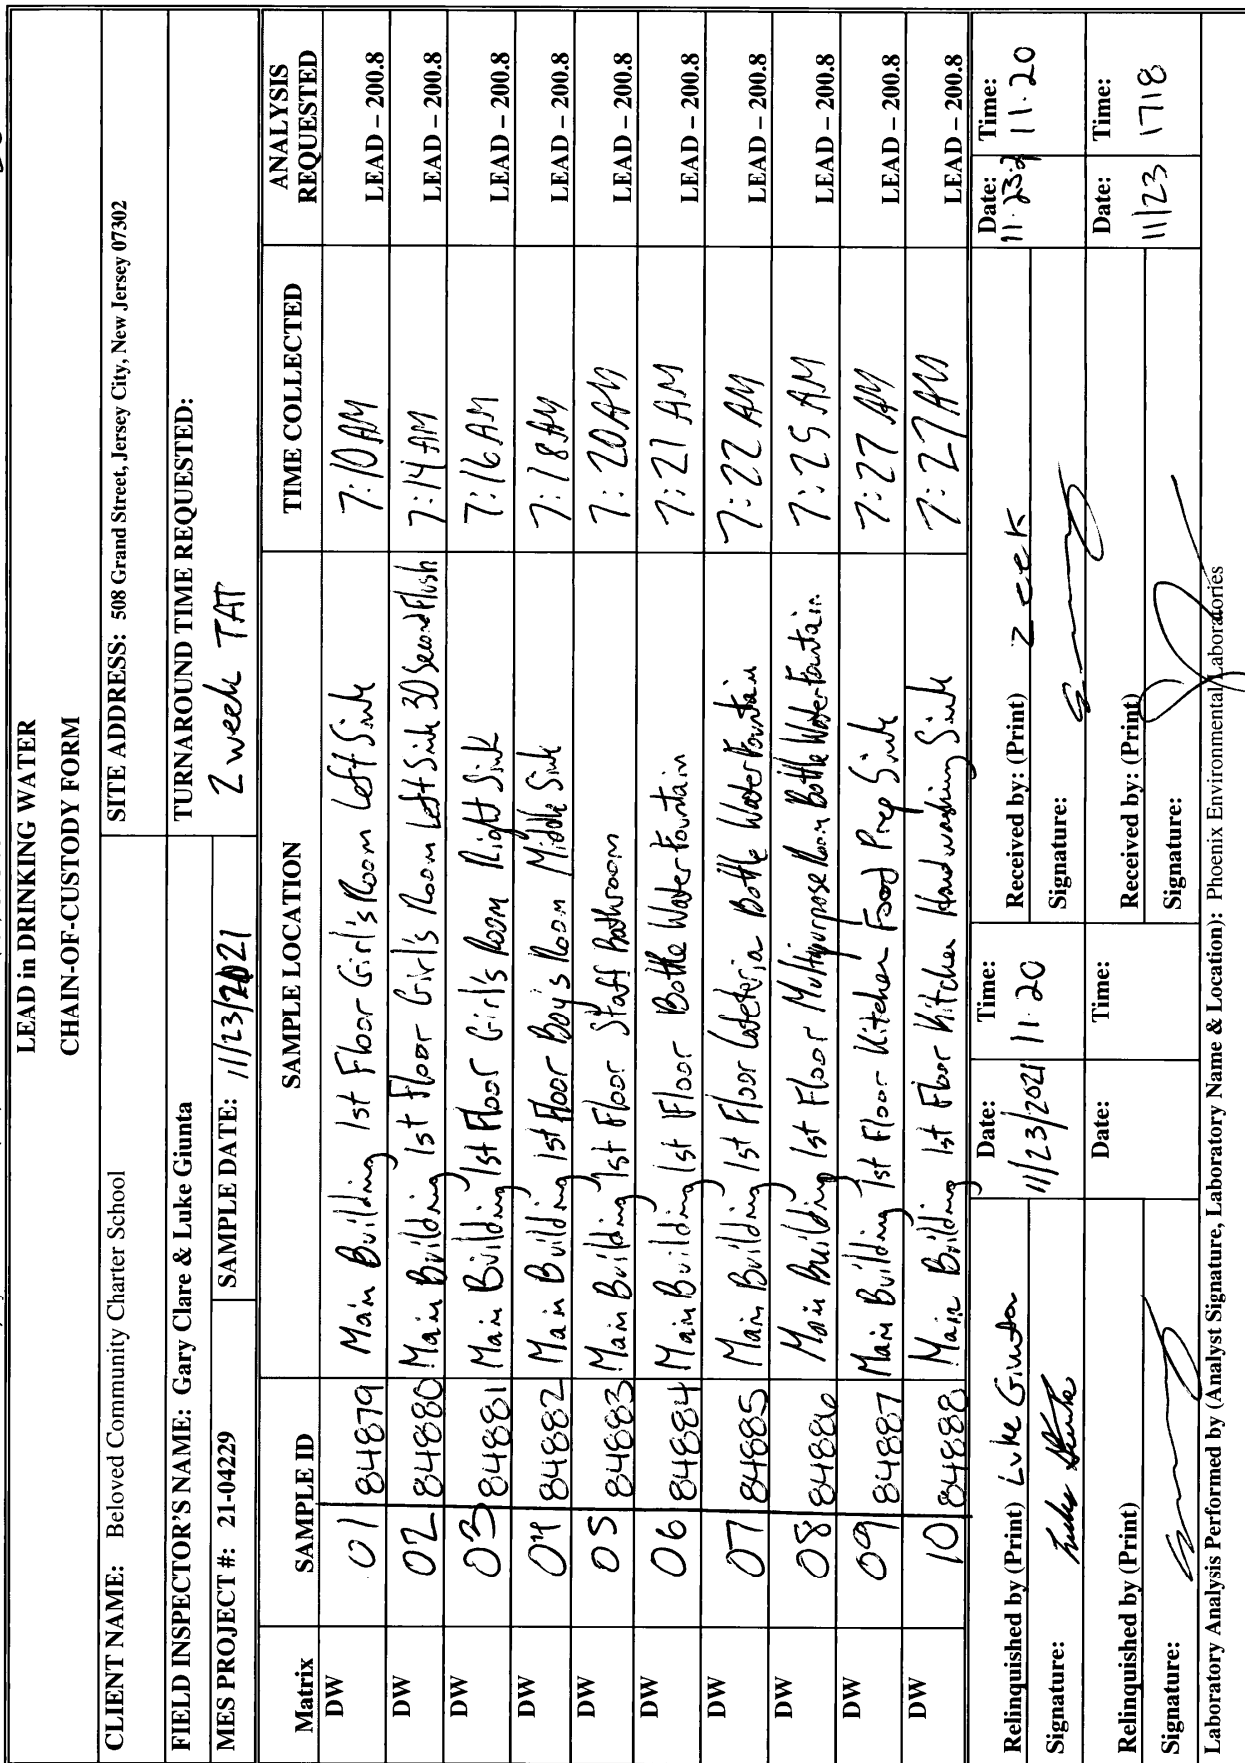 LEAD in DRINKING WATER
CHAIN-OF-CUSTODY FORM
CLIENT NAME: Beloved Community Charter School
SITE ADDRESS: 508 Grand Street, Jersey City, New Jersey 07302
FIELD INSPECTOR'S NAME: Gary Clare & Luke Giunta
TURNAROUND TIME REQUESTED:
2 week TAT
MES PROJECT #: 21-04229 SAMPLE DATE: 11/23/2021
Matrix SAMPLE ID SAMPLE LOCATION TIME COLLECTED ANALYSIS REQUESTED
DW 01 84879 Main Building 1st Floor Girl's Room Left Sink 7:10 AM LEAD – 200.8
DW 02 84880 Main Building 1st Floor Girl's Room Left Sink 30 Second Flush 7:14 AM LEAD – 200.8
DW 03 84881 Main Building 1st Floor Girl's Room Right Sink 7:16 AM LEAD – 200.8
DW 04 84882 Main Building 1st Floor Boy's Room Middle Sink 7:18 AM LEAD – 200.8
DW 05 84883 Main Building 1st Floor Staff Bathroom 7:20 AM LEAD – 200.8
DW 06 84884 Main Building 1st Floor Bottle Water Fountain 7:21 AM LEAD – 200.8
DW 07 84885 Main Building 1st Floor Cafeteria Bottle Water Fountain 7:22 AM LEAD – 200.8
DW 08 84886 Main Building 1st Floor Multipurpose Room Bottle Water Fountain 7:25 AM LEAD – 200.8
DW 09 84887 Main Building 1st Floor Kitchen Food Prep Sink 7:27 AM LEAD – 200.8
DW 10 84888 Main Building 1st Floor Kitchen Handwashing Sink 7:27 AM LEAD – 200.8
Relinquished by (Print) Luke Giunta Date: 11/23/2021 Time: 11.20 Received by: (Print) Zeek Date: 11.23.2 Time: 11.20
Signature: Luke Giunta Signature:
Relinquished by (Print) Date: Time: Received by: (Print) Date: 11/23 Time: 1718
Signature: Signature:
Laboratory Analysis Performed by (Analyst Signature, Laboratory Name & Location): Phoenix Environmental Laboratories